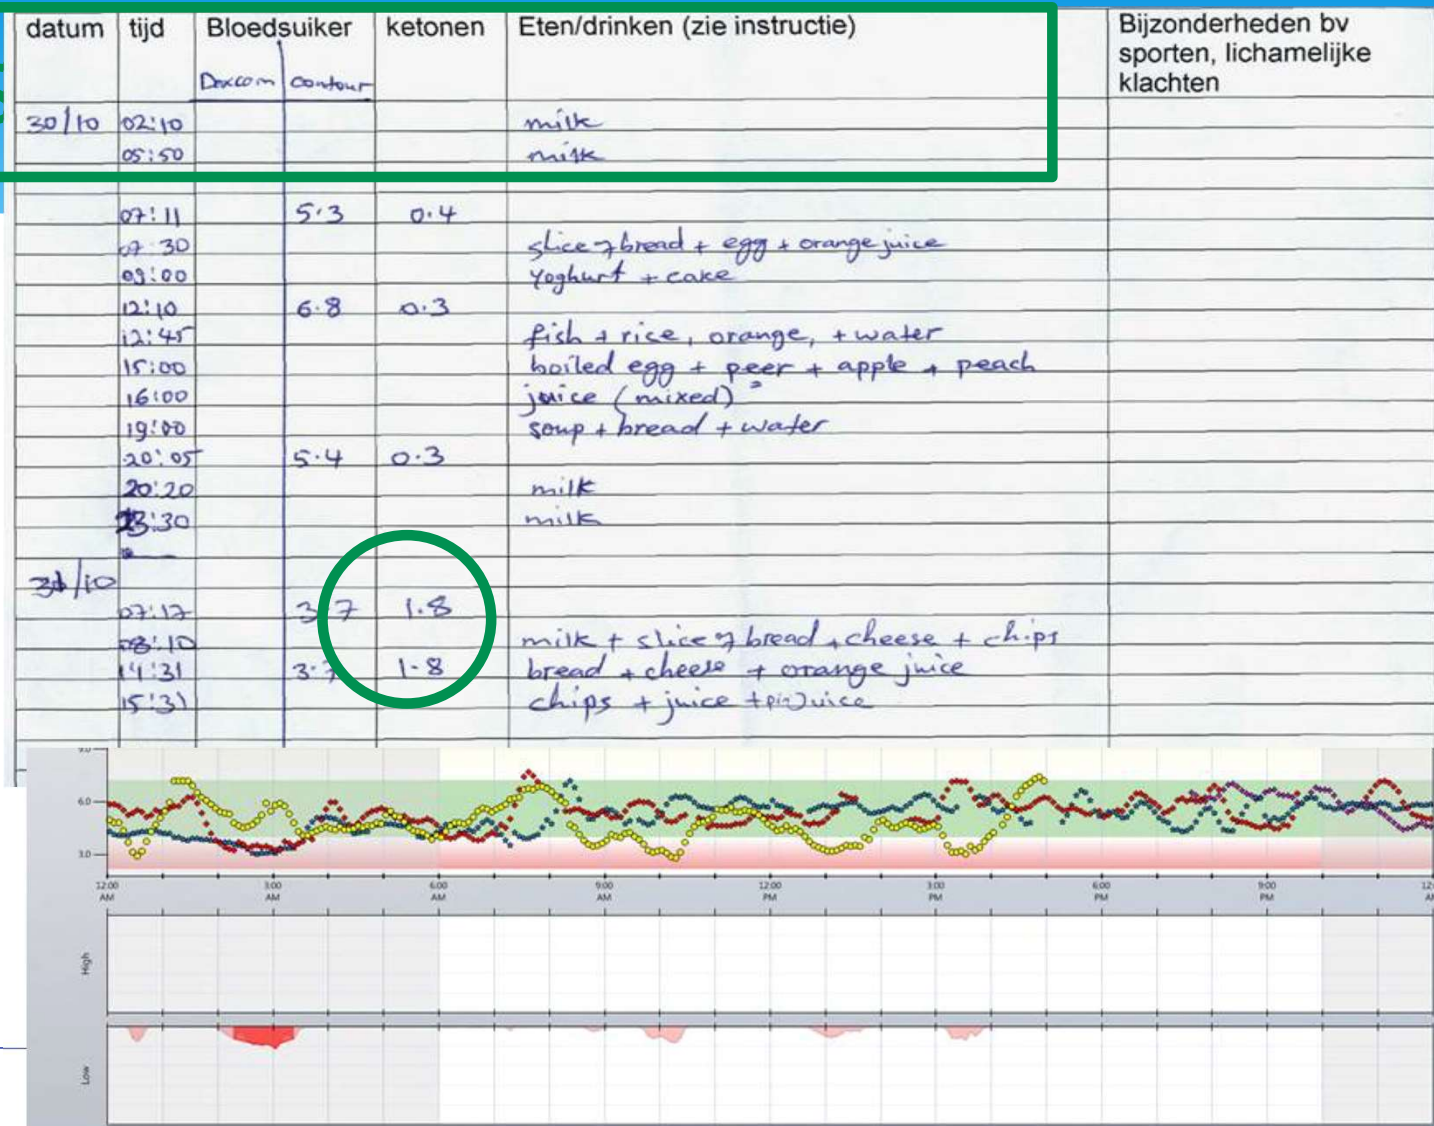 datum tijd Bloedsuiker ketonen Eten/drinken (zie instructie) Bijzonderheden bv
sporten, lichamelijke
klachten
Dexcom contour
30/10 02:10 milk
05:50 milk
07:11 5.3 0.4
07:30 slice of bread + egg + orange juice
09:00 Yoghurt + cake
12:10 6.8 0.3
12:45 fish + rice, orange, + water
15:00 boiled egg + peer + apple + peach
16:00 juice (mixed)
19:00 soup + bread + water
20:05 5.4 0.3
20:20 milk
23:30 milk
31/10
07:17 3.7 1.8
08:10 milk + slice of bread + cheese + chips
14:31 3.7 1.8 bread + cheese + orange juice
15:31 chips + juice
9.0
6.0
3.0
12:00 3:00 6:00 9:00 12:00 3:00 6:00 9:00
AM AM AM AM PM PM PM PM
High
Low